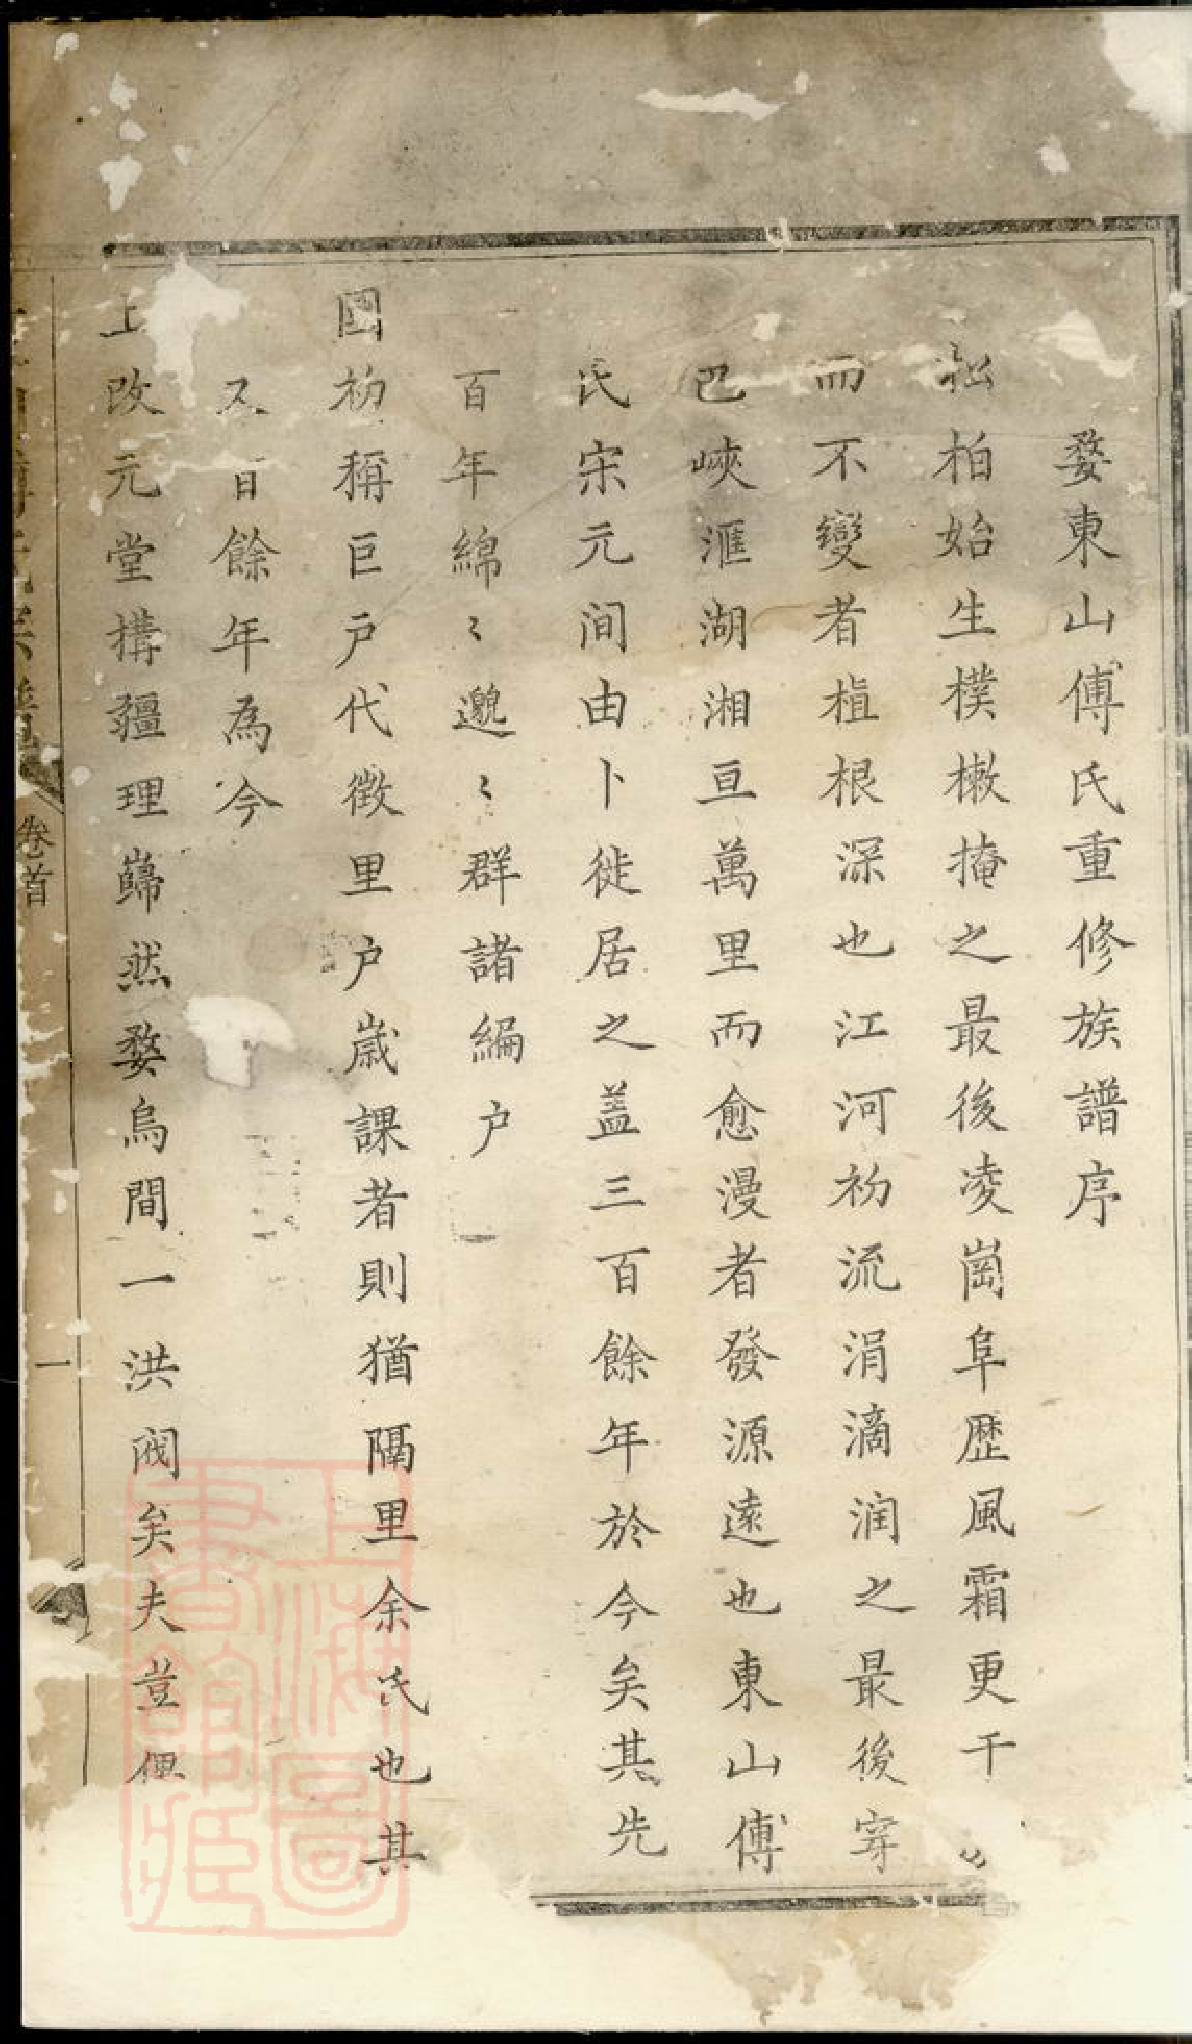 婺東山傅氏重修族譜序
松柏始生樸樕掩之最後凌崗阜歷風霜更千
而不變者植根深也江河初流涓滴润之最後穿
巴峽滙湖湘亘萬里而愈漫者發源逺也東山傅
氏宋元间由卜徙居之盖三百餘年於今矣其先
百年綿〻邈〻群諸編户
國初稱巨戸代徵里户嵗課者則猶隔里余氏也其
又百餘年為今
上改元堂構疆理巋然婺烏間一洪阀矣夫荳
卷首
一
上海圖書館藏